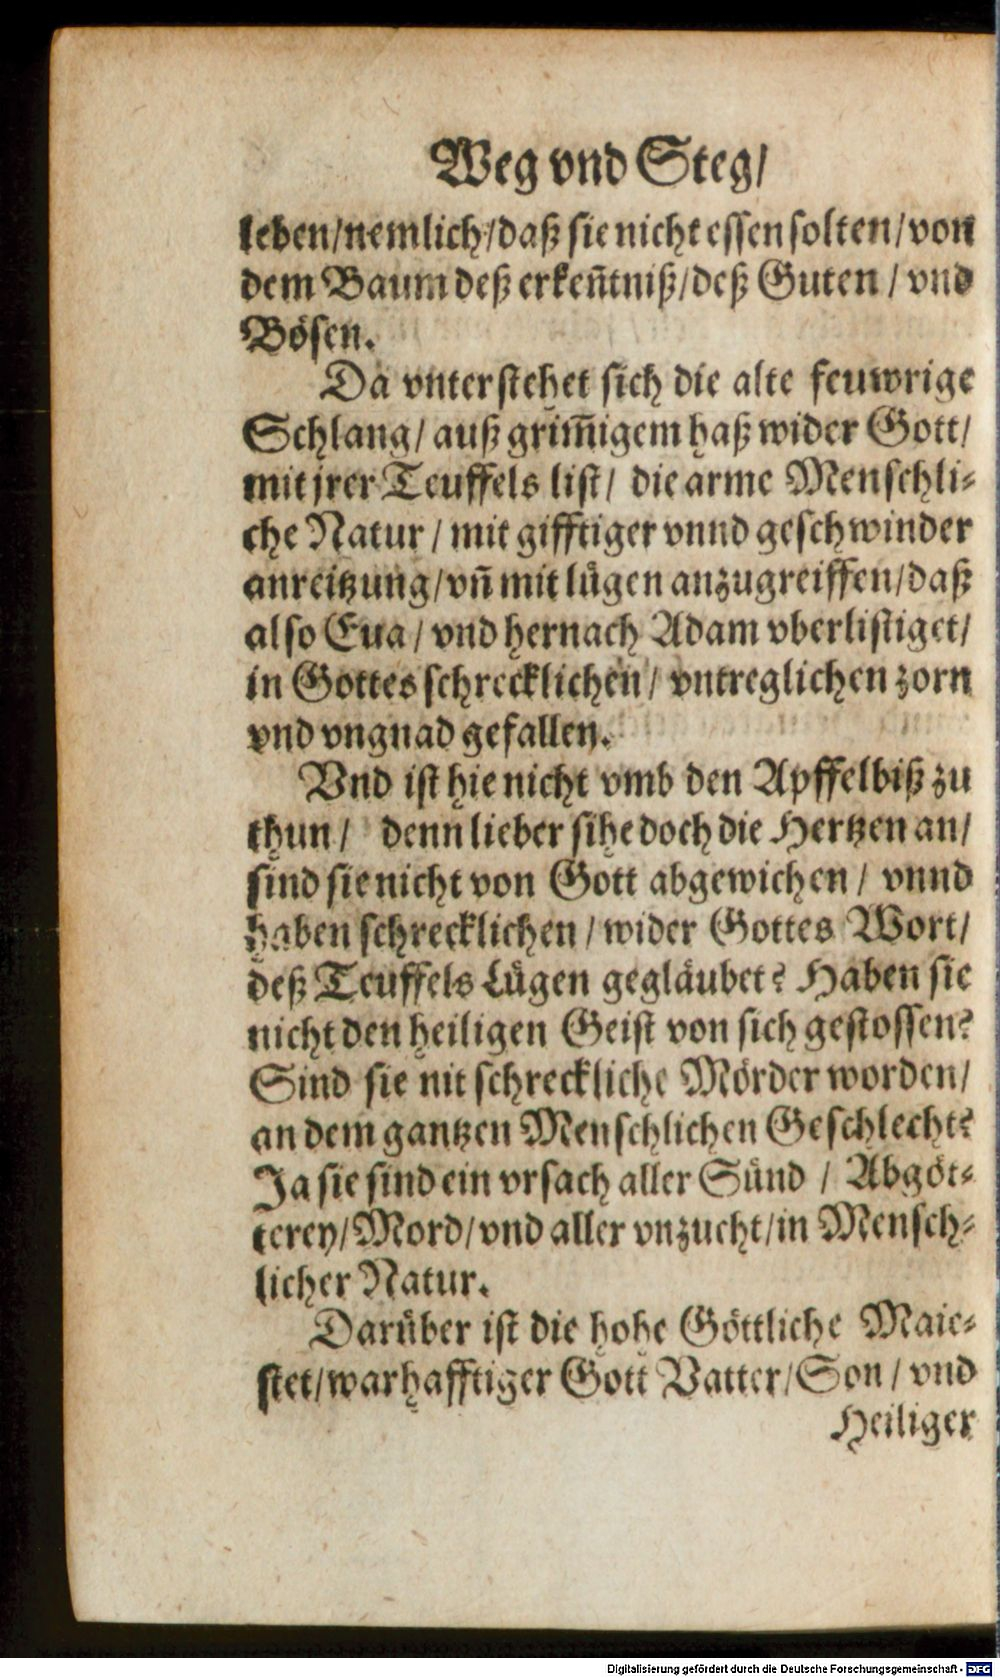 Weg vnd Steg/
leben/nemlich/daß sie nicht essen solten/von
dem Baum deß erkeñtniß/deß Guten / vnd
Bösen.
Da vnterstehet sich die alte feuwrige
Schlang/ auß grim̃igem haß wider Gott/
mit jrer Teuffels list/ die arme Menschli⸗
che Natur / mit gifftiger vnnd geschwinder
anreitzung/vñ mit lügen anzugreiffen/daß
also Eua / vnd hernach Adam vberlistiget/
in Gottes schrecklichen / vntreglichen zorn
vnd vngnad gefallen.
Vnd ist hie nicht vmb den Apffelbiß zu
thun / denn lieber sihe doch die Hertzen an/
sind sie nicht von Gott abgewichen / vnnd
haben schrecklichen / wider Gottes Wort/
deß Teuffels Lügen gegläubet? Haben sie
nicht den heiligen Geist von sich gestossen?
Sind sie nit schreckliche Mörder worden/
an dem gantzen Menschlichen Geschlecht?
Ja sie sind ein vrsach aller Sünd / Abgöt⸗
terey/Mord/vnd aller vnzucht/in Mensch⸗
licher Natur.
Darüber ist die hohe Göttliche Maie⸗
stet/warhafftiger Gott Vatter/Son / vnd
Heiliger
Digitalisierung gefördert durch die Deutsche Forschungsgemeinschaft - DFG